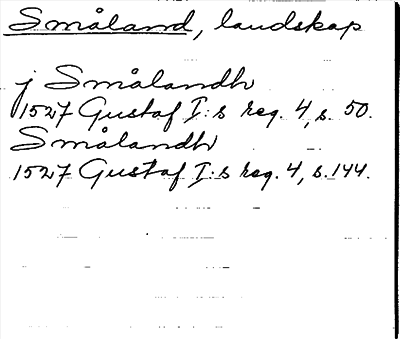 Småland, landskap
j Smålandh
1527 Gustaf I:s reg. 4, s. 50.
Smålandh
1527 Gustaf I:s reg. 4, s. 144.